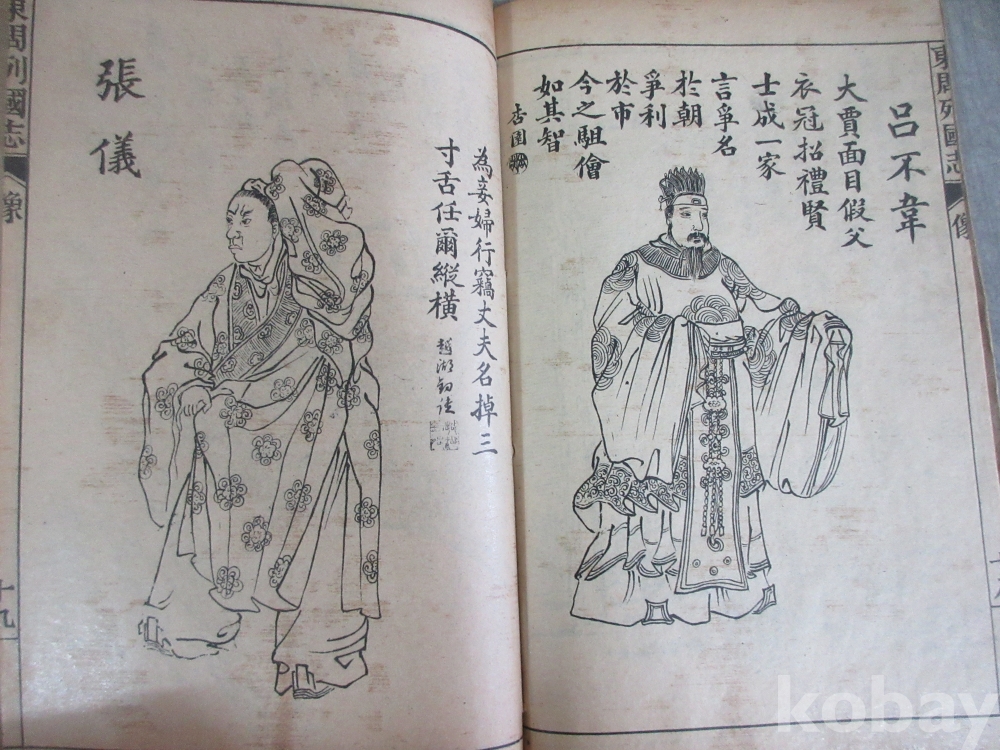 東周列國志
像
呂不韋
大賈面目假父
衣冠招禮賢
士成一家
言爭名
於朝
爭利
於市
今之駔儈
如其智
杏園
張儀
為妾婦行竊丈夫名掉三
寸舌任爾縱橫
東周列國志
像
十九
kobay